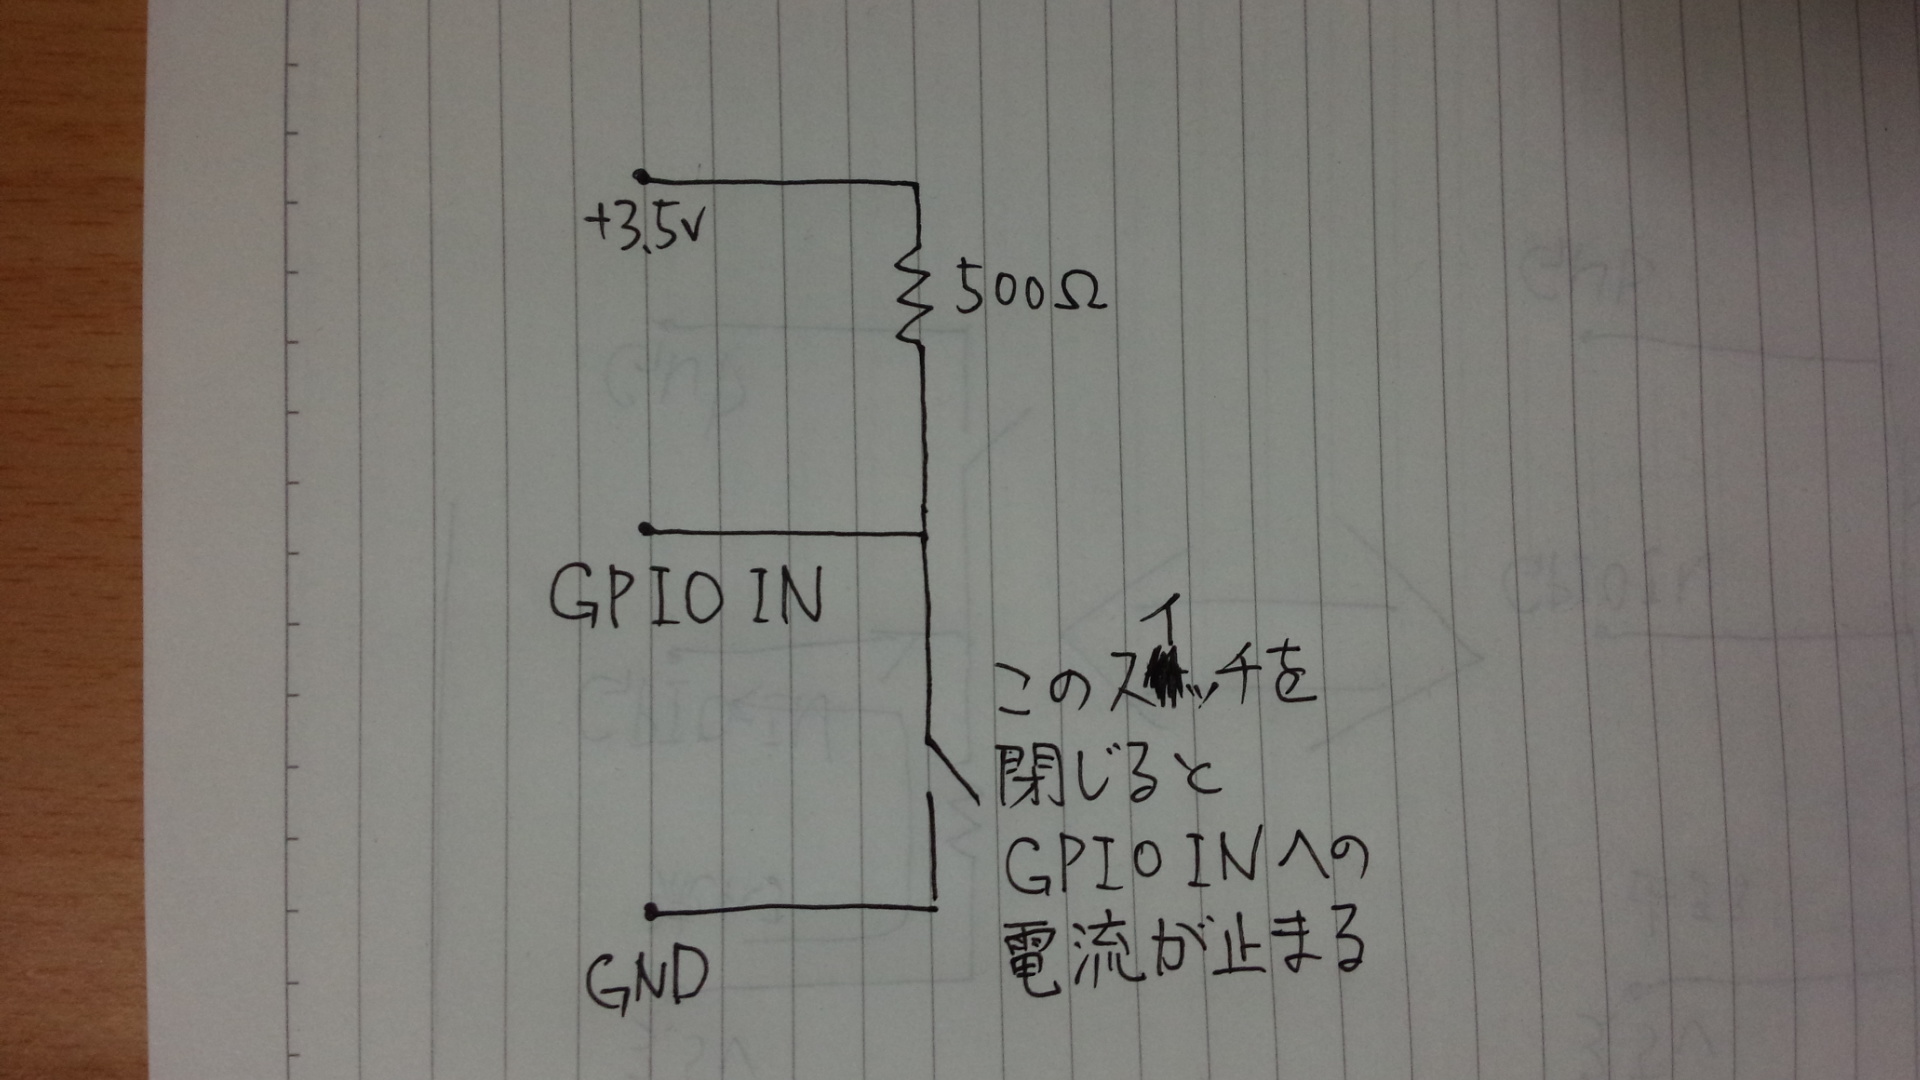 +3.5v
500Ω
GPIO IN
このスイッチを
閉じると
GPIO INへの
電流が止まる
GND